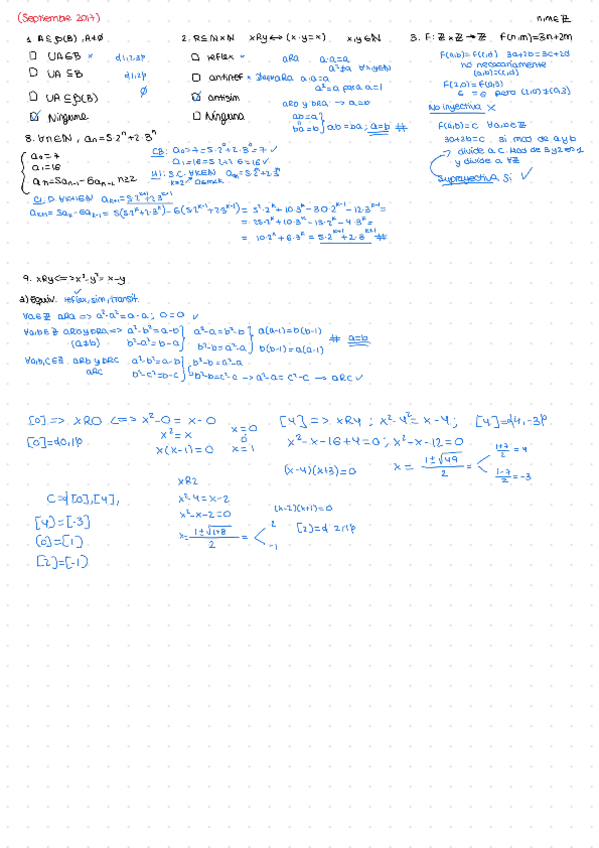 (Septiembre 2017)
n,m∈ℤ
1. A⊆P(B), A≠∅
☐ UA∈B × {1,2,3}
☐ UA⊆B {1,2}
☐ UA⊆P(B) ∅
☑ Ninguna
2. R⊆ℕ×ℕ xRy⟷(x·y=x) x,y∈ℕ
☐ reflex × aRa a·a=a
a²≠a ∀x∈ℕ
☐ antiref × a·a=a
a²=a para a=1
☑ antisim aRb y bRa → a=b
☐ Ninguna ab=a
ba=b } ab=ba; a=b #
3. F: ℤ×ℤ→ℤ F(n,m)=3n+2m
F(a,b)=F(c,d) 3a+2b=3c+2d
no necesariamente
(a,b)=(c,d)
F(2,0)=F(0,3)
6 = 6 pero (2,0)≠(0,3)
No inyectiva ×
F(a,b)=c ∀a,b∈ℤ
3a+2b=c si mcd de a y b
divide a c. mcd de 3 y 2 es 1
y divide a ∀ℤ
Suprayectiva Sí ✓
8. ∀n∈ℕ, aₙ=5·2ⁿ+2·3ⁿ
a₀=7
a₁=16
aₙ=5aₙ₋₁-6aₙ₋₂ n≥2
CB: a₀=7=5·2⁰+2·3⁰=7 ✓
a₁=16=5·2+2·6=16 ✓
HI: S.C. ∀k∈ℕ aₖ=5·2ᵏ+2·3ᵏ
CI: D. ∀k+1∈ℕ aₖ₊₁=5·2ᵏ⁺¹+2·3ᵏ⁺¹
aₖ₊₁=5aₖ-6aₖ₋₁=5(5·2ᵏ+2·3ᵏ)-6(5·2ᵏ⁻¹+2·3ᵏ⁻¹)=5²·2ᵏ+10·3ᵏ-30·2ᵏ⁻¹-12·3ᵏ⁻¹=
=25·2ᵏ+10·3ᵏ-15·2ᵏ-4·3ᵏ=
=10·2ᵏ+6·3ᵏ=5·2ᵏ⁺¹+2·3ᵏ⁺¹ #
9. xRy<=>x²-y²=x-y
a) equiv. reflex, sim, transit.
∀a∈ℤ aRa => a²-a²=a-a; 0=0 ✓
∀a,b∈ℤ aRb y bRa => a²-b²=a-b } a²-a=b²-b } a(a-1)=b(b-1)
(a≠b) b²-a²=b-a } b²-b=a²-a } b(b-1)=a(a-1) # a=b
∀a,b,c∈ℤ aRb y bRc a²-b²=a-b } b²-b=a²-a
aRc b²-c²=b-c } b²-b=c²-c → a²-a=c²-c → aRc ✓
[0] => xR0 <=> x²-0=x-0
[0]={0,1} x²=x x=0
x(x-1)=0 x=1
[4] => xR4; x²-4²=x-4; [4]={4,-3}
x²-x-16+4=0; x²-x-12=0
(x-4)(x+3)=0 x=(1±√49)/2= (1+7)/2=4
(1-7)/2=-3
xR2
C={[0],[4], x²-4=x-2
[4]=[-3] x²-x-2=0 (x-2)(x+1)=0
[0]=[1] x=(1±√1+8)/2= 2
-1
[2]=[-1]